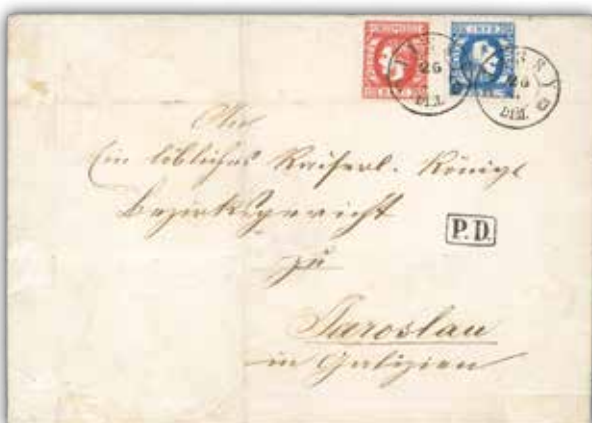 26
26
An
Ein löbliches Kaiserl. Königl
Bezirksgericht
P.D.
zu
Jaroslau
in Galizien